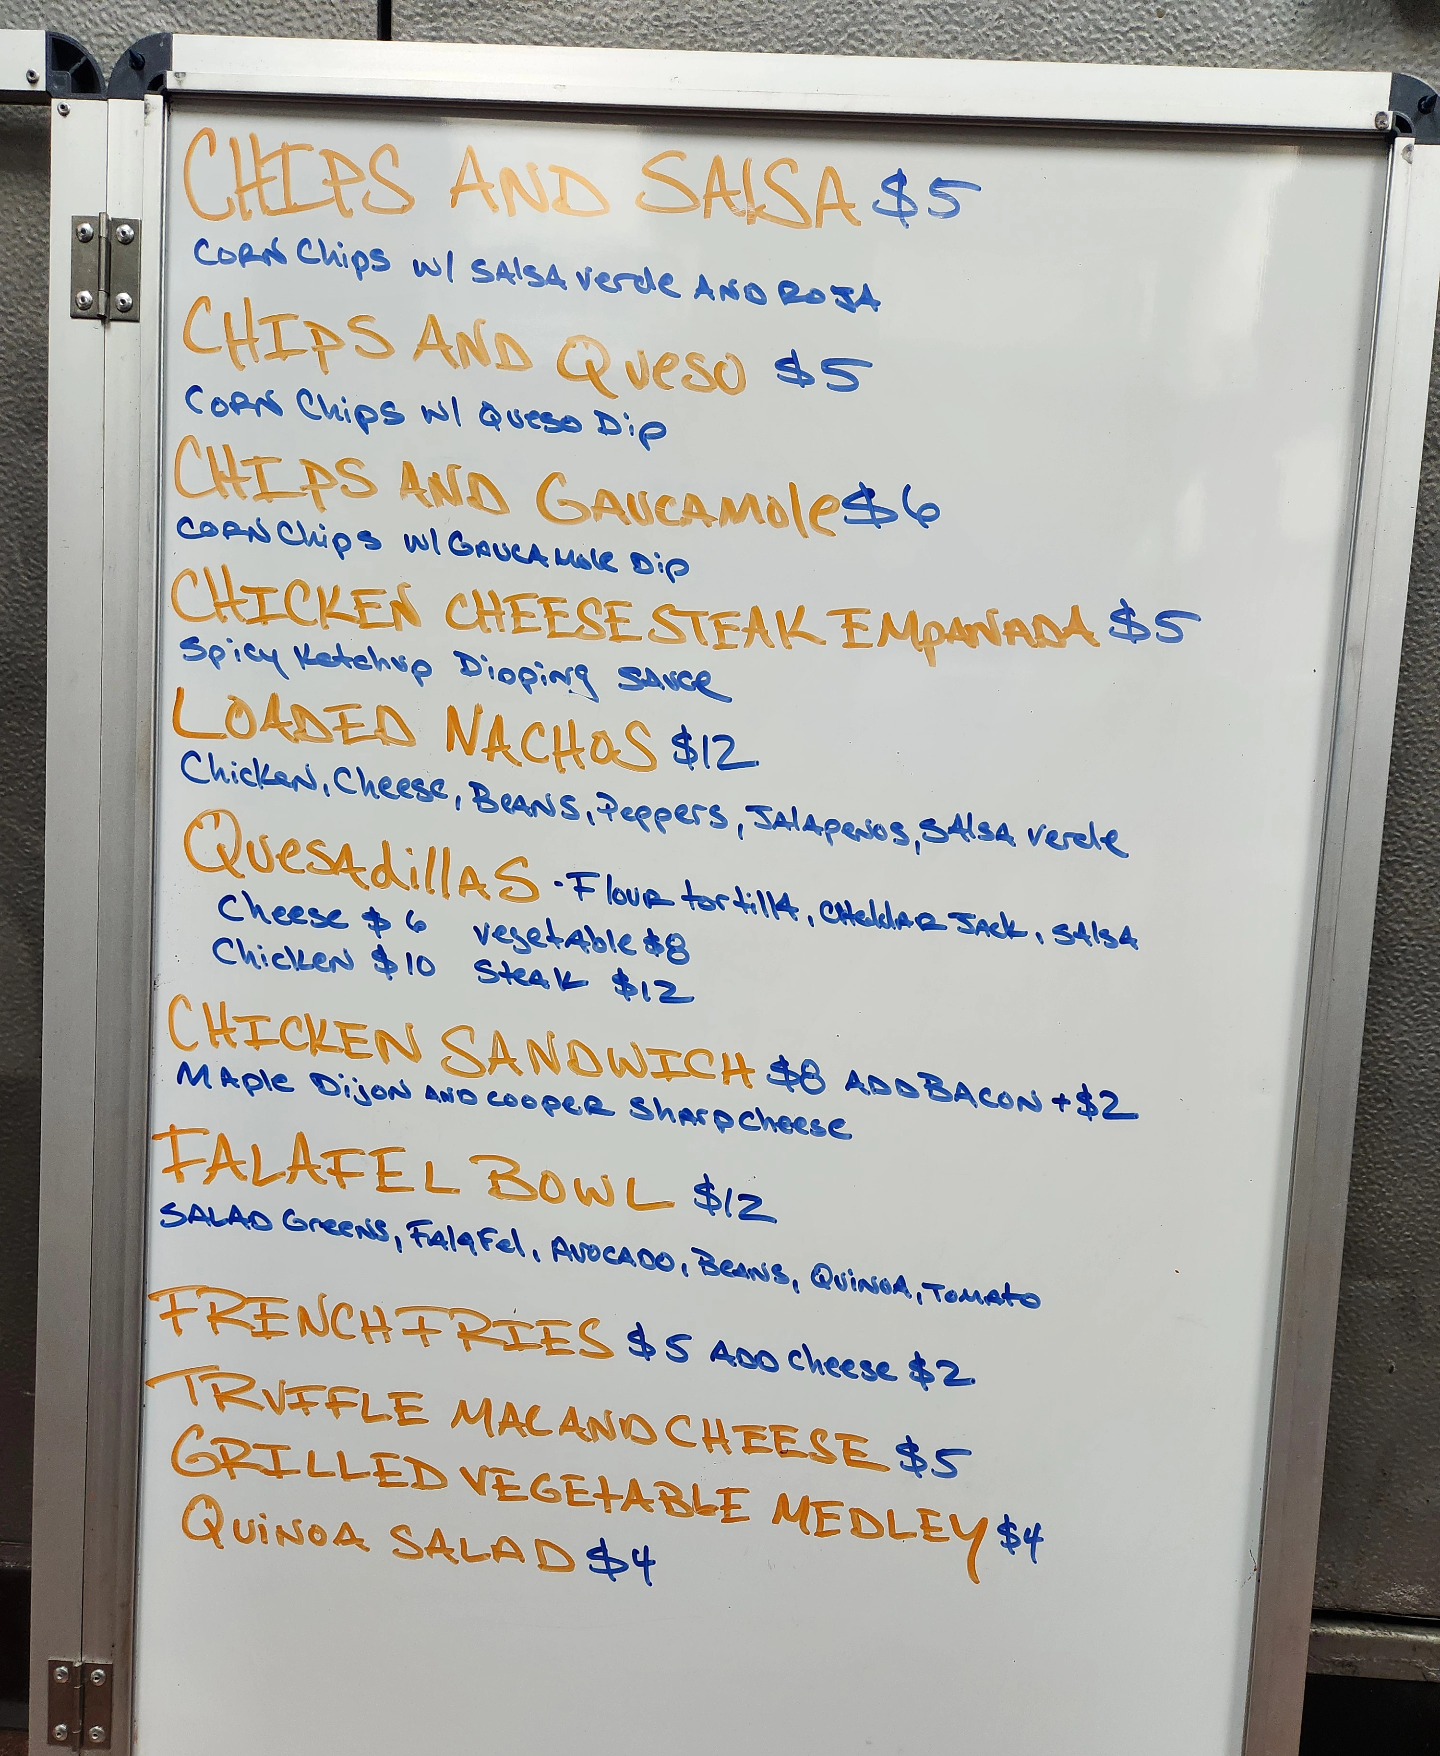 CHIPS AND SALSA $5
CORN Chips w/ SALSA verde AND ROJA
CHIPS AND Queso $5
CORN Chips w/ Queso Dip
CHIPS AND GAUCAMole $6
CORN Chips w/ GAUCAMole Dip
CHICKEN CHEESESTEAK EMPANADA $5
Spicy Ketchup Dipping SAUCE
LOADED NACHOS $12
Chicken, Cheese, BEANS, Peppers, JALApeNos, SALSA verde
QuesAdillAS - Flour tortillA, CHeddAR JAck, SALSA
Cheese $6 vegetAble $8
Chicken $10 SteAK $12
CHICKEN SANDWICH $8 ADD BACON +$2
MAple Dijon AND COOPER Sharp cheese
FALAFEL BOWL $12
SALAD GreeNS, FAlAFel, AVOCADO, BeANS, QUiNOA, TOMAto
FRENCH FRIES $5 ADD Cheese $2
TRUFFLE MAC AND CHEESE $5
GRILLED VEGETABLE MEDLEY $4
QuiNOA SALAD $4